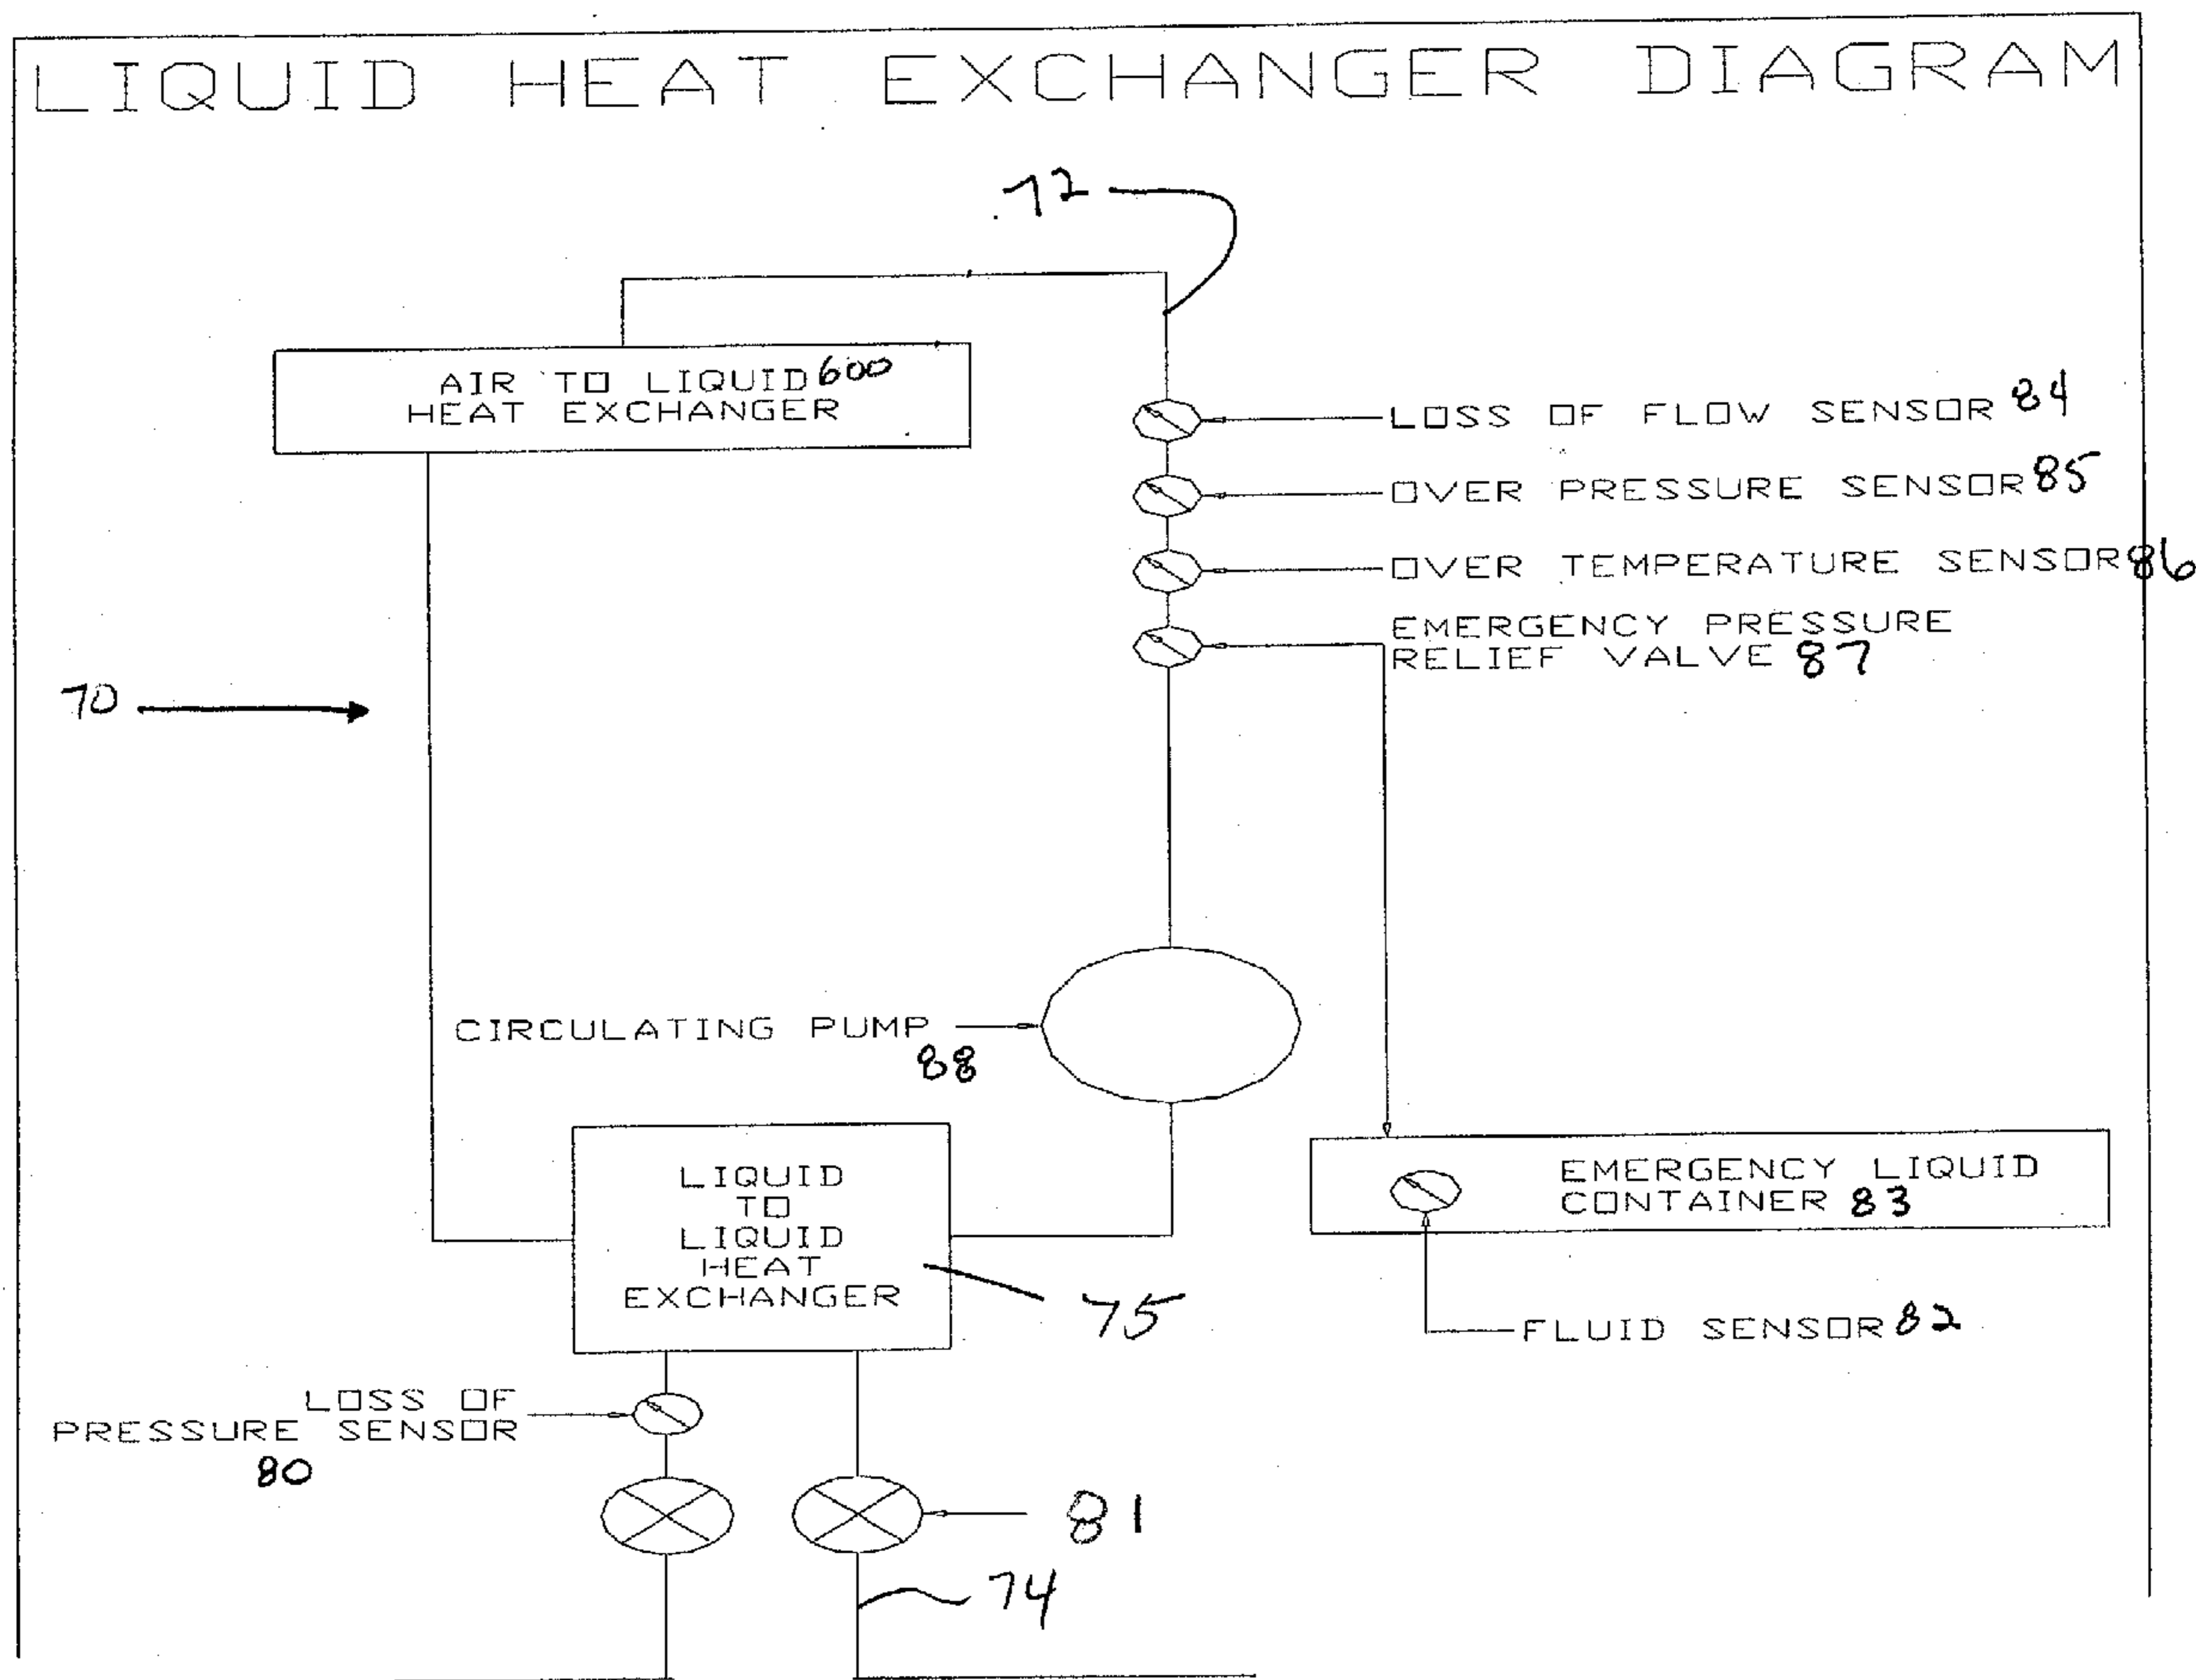 LIQUID HEAT EXCHANGER DIAGRAM
72
AIR TO LIQUID 600
HEAT EXCHANGER
LOSS OF FLOW SENSOR 84
OVER PRESSURE SENSOR 85
OVER TEMPERATURE SENSOR 86
EMERGENCY PRESSURE
RELIEF VALVE 87
70
CIRCULATING PUMP
88
LIQUID
TO
LIQUID
HEAT
EXCHANGER
75
EMERGENCY LIQUID
CONTAINER 83
FLUID SENSOR 82
LOSS OF
PRESSURE SENSOR
80
81
74